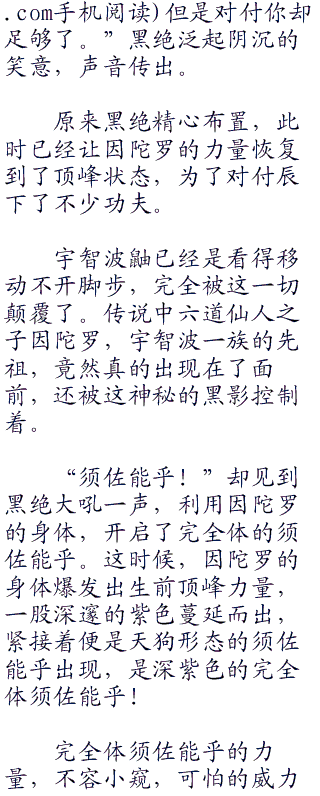 .com手机阅读)但是对付你却
足够了。”黑绝泛起阴沉的
笑意，声音传出。
原来黑绝精心布置，此
时已经让因陀罗的力量恢复
到了顶峰状态，为了对付辰
下了不少功夫。
宇智波鼬已经是看得移
动不开脚步，完全被这一切
颠覆了。传说中六道仙人之
子因陀罗，宇智波一族的先
祖，竟然真的出现在了面
前，还被这神秘的黑影控制
着。
“须佐能乎！”却见到
黑绝大吼一声，利用因陀罗
的身体，开启了完全体的须
佐能乎。这时候，因陀罗的
身体爆发出生前顶峰力量，
一股深邃的紫色蔓延而出，
紧接着便是天狗形态的须佐
能乎出现，是深紫色的完全
体须佐能乎！
完全体须佐能乎的力
量，不容小窥，可怕的威力